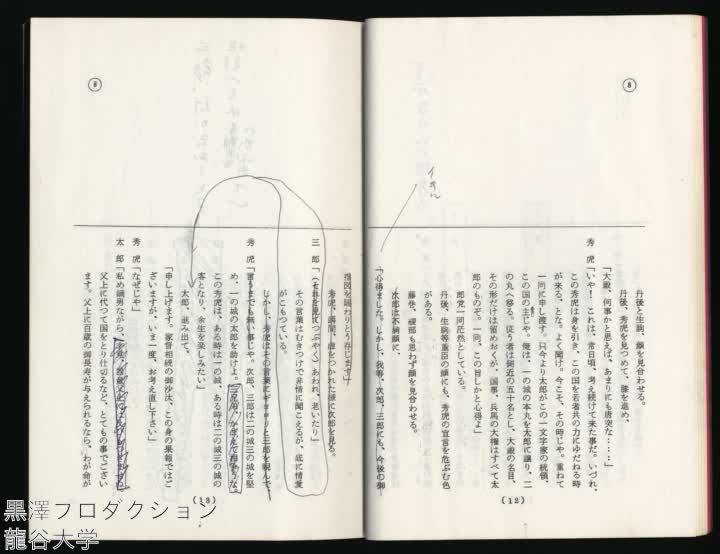 8
丹後と生駒、顔を見合わせる。
丹後、秀虎を見つめて、膝を進め、
「大殿、何事かと思えば、あまりにも唐突な……」
秀虎「いや！これは、常日頃、考え続けて来た事だ。いづれ、
この秀虎は身を引き、この国を若者共の力にゆだねる時
が来る、とな。よく聞け。今こそ、その時じゃ。重ねて
一同に申し渡す。只今より太郎がこの一文字家の統領、
この国の主じゃ。俺は、一の城の本丸を太郎に譲り、二
の丸へ移る。従う者は側近の五十名とし、大殿の名目、
その形だけは留めおくが、国事、兵馬の大権はすべて太
郎のものぞ。一同、この旨しかと心得よ」
郎党一同茫然としている。
丹後、生駒等重臣の顔にも、秀虎の宣言を危ぶむ色
がある。
藤巻、綾部も思わず顔を見合わせる。
次郎は不満顔に、
「心得ました。しかし、我等、次郎、三郎にも、今後の御
(12)
8
指図を賜わりとう存じます」
秀虎、瞬間、虚をつかれた様に次郎を見る。
三郎「（それを見てつぶやく）あわれ、老いたり」
その言葉はむきつけで非情に聞こえるが、底に情愛
がこもっている。
しかし、秀虎はその言葉にギョロリと三郎を睨んで、
秀虎「言うまでも無い事じゃ。次郎、三郎は二の城三の城を堅
め、一の城の太郎を助けよ。
この秀虎は、ある時は一の城、ある時は二の城三の城の
客となり、余生を楽しみたい」
太郎、進み出て、
「申し上げます。家督相続の御沙汰、この身の果報ではご
ざいますが、いま一度、お考え直し下さい」
秀虎「なぜじゃ」
太郎「私め嫡男ながら、
父上に代って国をとり仕切るなど、とてもの事でござい
ます。父上に百歳の御長寿が与えられるなら、わが命が
(13)
黒澤プロダクション
龍谷大学